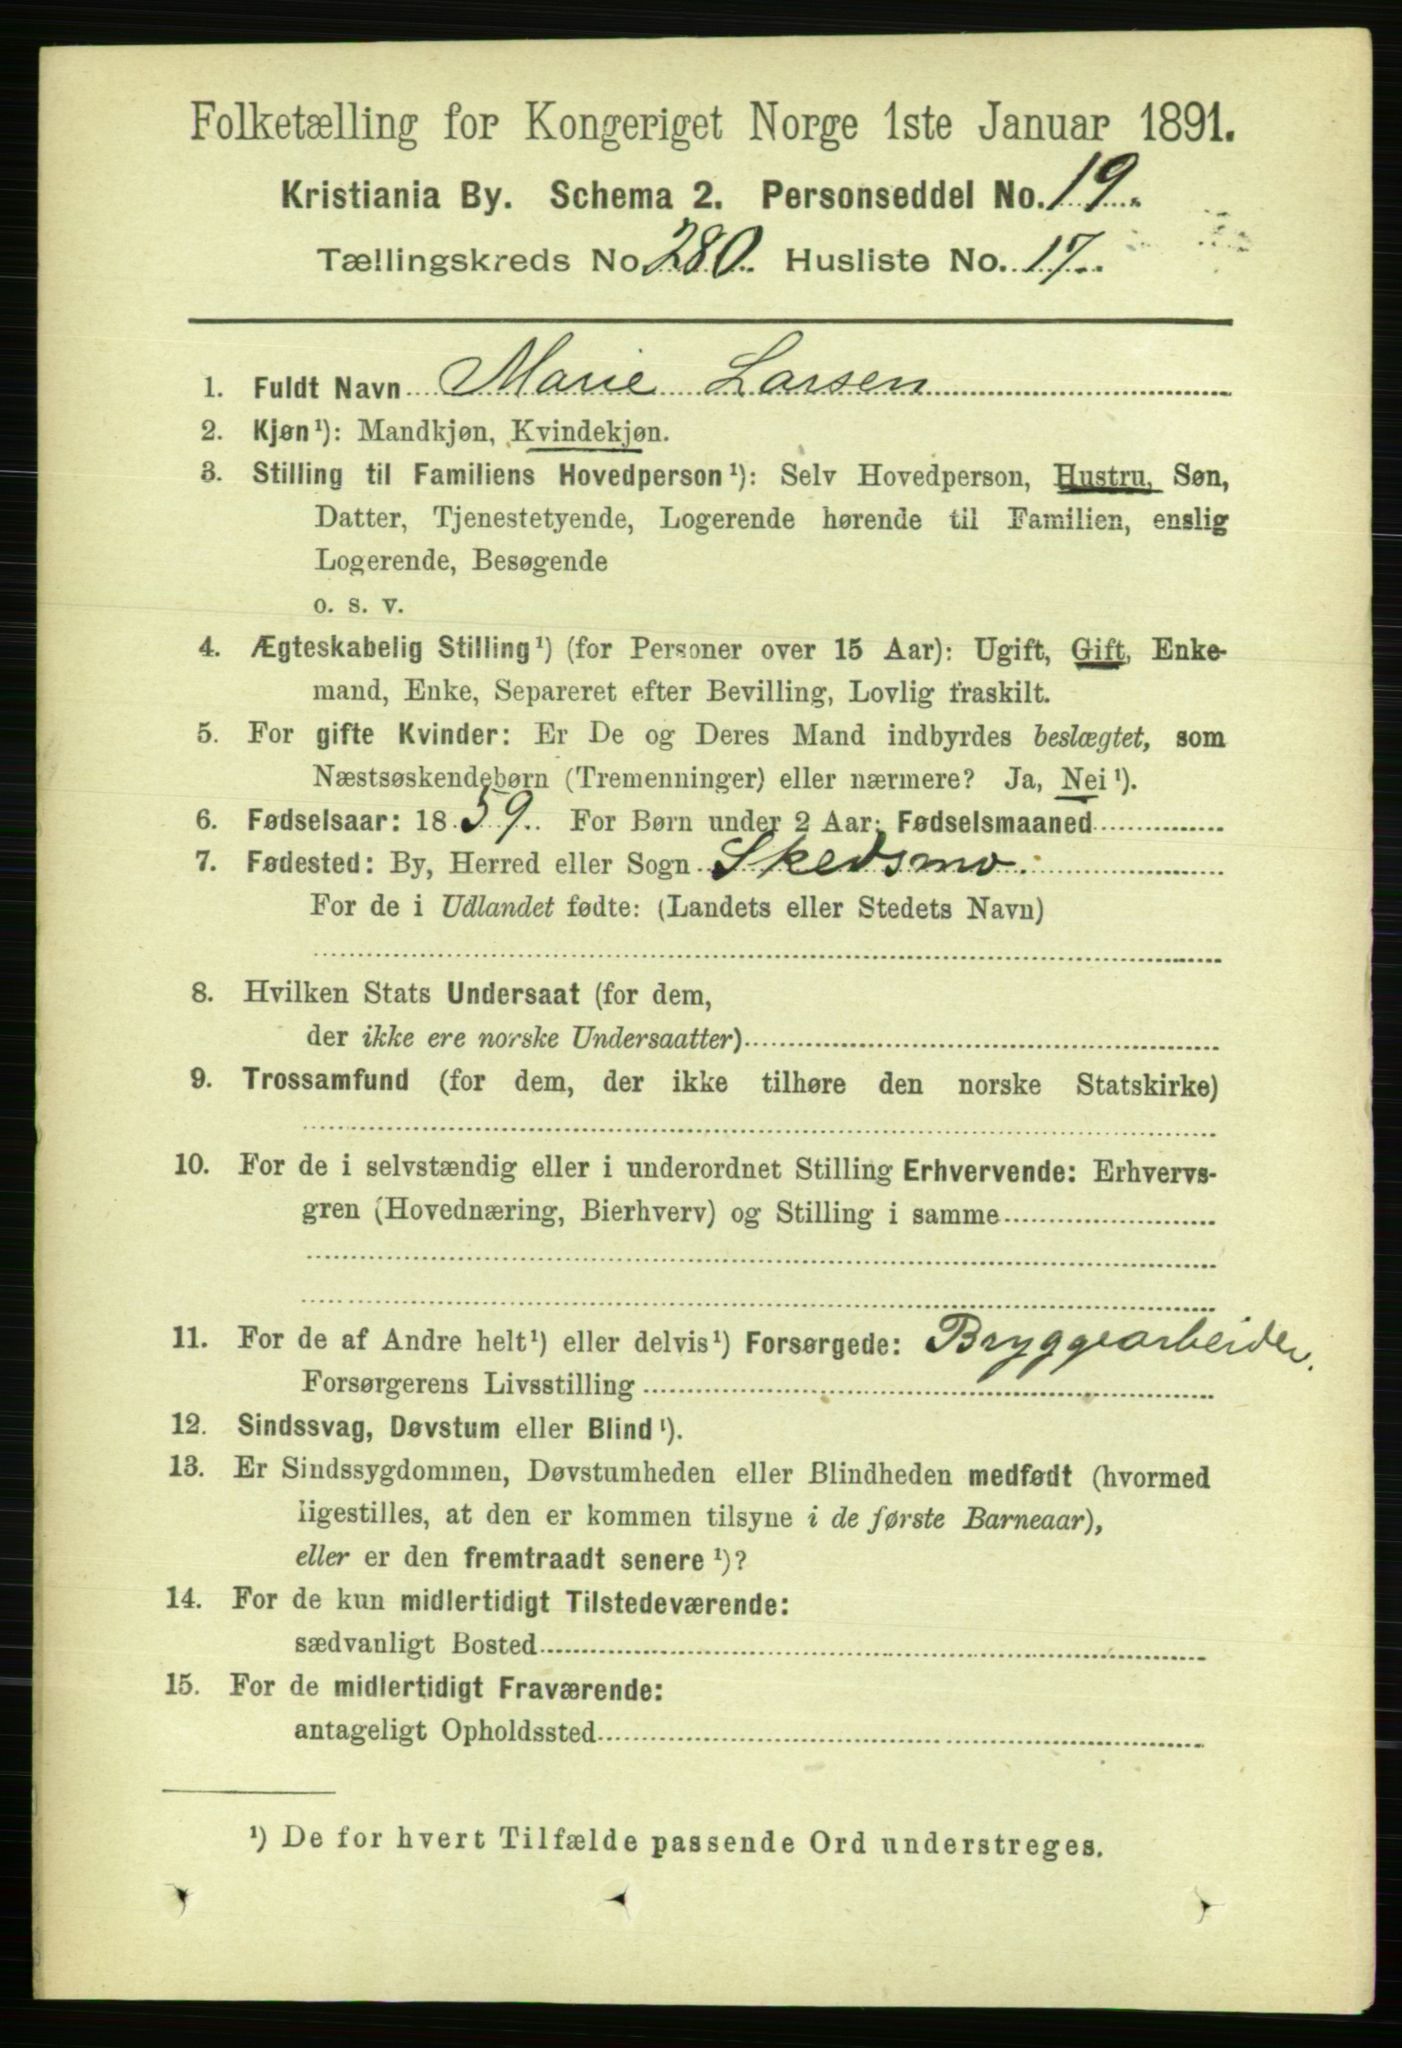 Folketælling for Kongeriget Norge 1ste Januar 1891.
Kristiania By. Schema 2. Personseddel No. 19.
Tællingskreds No 280. Husliste No. 17.
1. Fuldt Navn Marie Larsen
2. Kjøn¹): Mandkjøn, Kvindekjøn.
3. Stilling til Familiens Hovedperson¹): Selv Hovedperson, Hustru, Søn,
Datter, Tjenestetyende, Logerende hørende til Familien, enslig
Logerende, Besøgende
o. s. v.
4. Ægteskabelig Stilling¹) (for Personer over 15 Aar): Ugift, Gift, Enke-
mand, Enke, Separeret efter Bevilling, Lovlig fraskilt.
5. For gifte Kvinder: Er De og Deres Mand indbyrdes beslægtet, som
Næstsøskendebørn (Tremenninger) eller nærmere? Ja, Nei¹).
6. Fødselsaar: 1859. For Børn under 2 Aar: Fødselsmaaned
7. Fødested: By, Herred eller Sogn Skedsmo.
For de i Udlandet fødte: (Landets eller Stedets Navn)
8. Hvilken Stats Undersaat (for dem,
der ikke ere norske Undersaatter)
9. Trossamfund (for dem, der ikke tilhøre den norske Statskirke)
10. For de i selvstændig eller i underordnet Stilling Erhvervende: Erhvervs-
gren (Hovednæring, Bierhverv) og Stilling i samme
11. For de af Andre helt¹) eller delvis¹) Forsørgede: Bryggearbeider.
Forsørgerens Livsstilling
12. Sindssvag, Døvstum eller Blind¹).
13. Er Sindssygdommen, Døvstumheden eller Blindheden medfødt (hvormed
ligestilles, at den er kommen tilsyne i de første Barneaar),
eller er den fremtraadt senere¹)?
14. For de kun midlertidigt Tilstedeværende:
sædvanligt Bosted
15. For de midlertidigt Fraværende:
antageligt Opholdssted
¹) De for hvert Tilfælde passende Ord understreges.